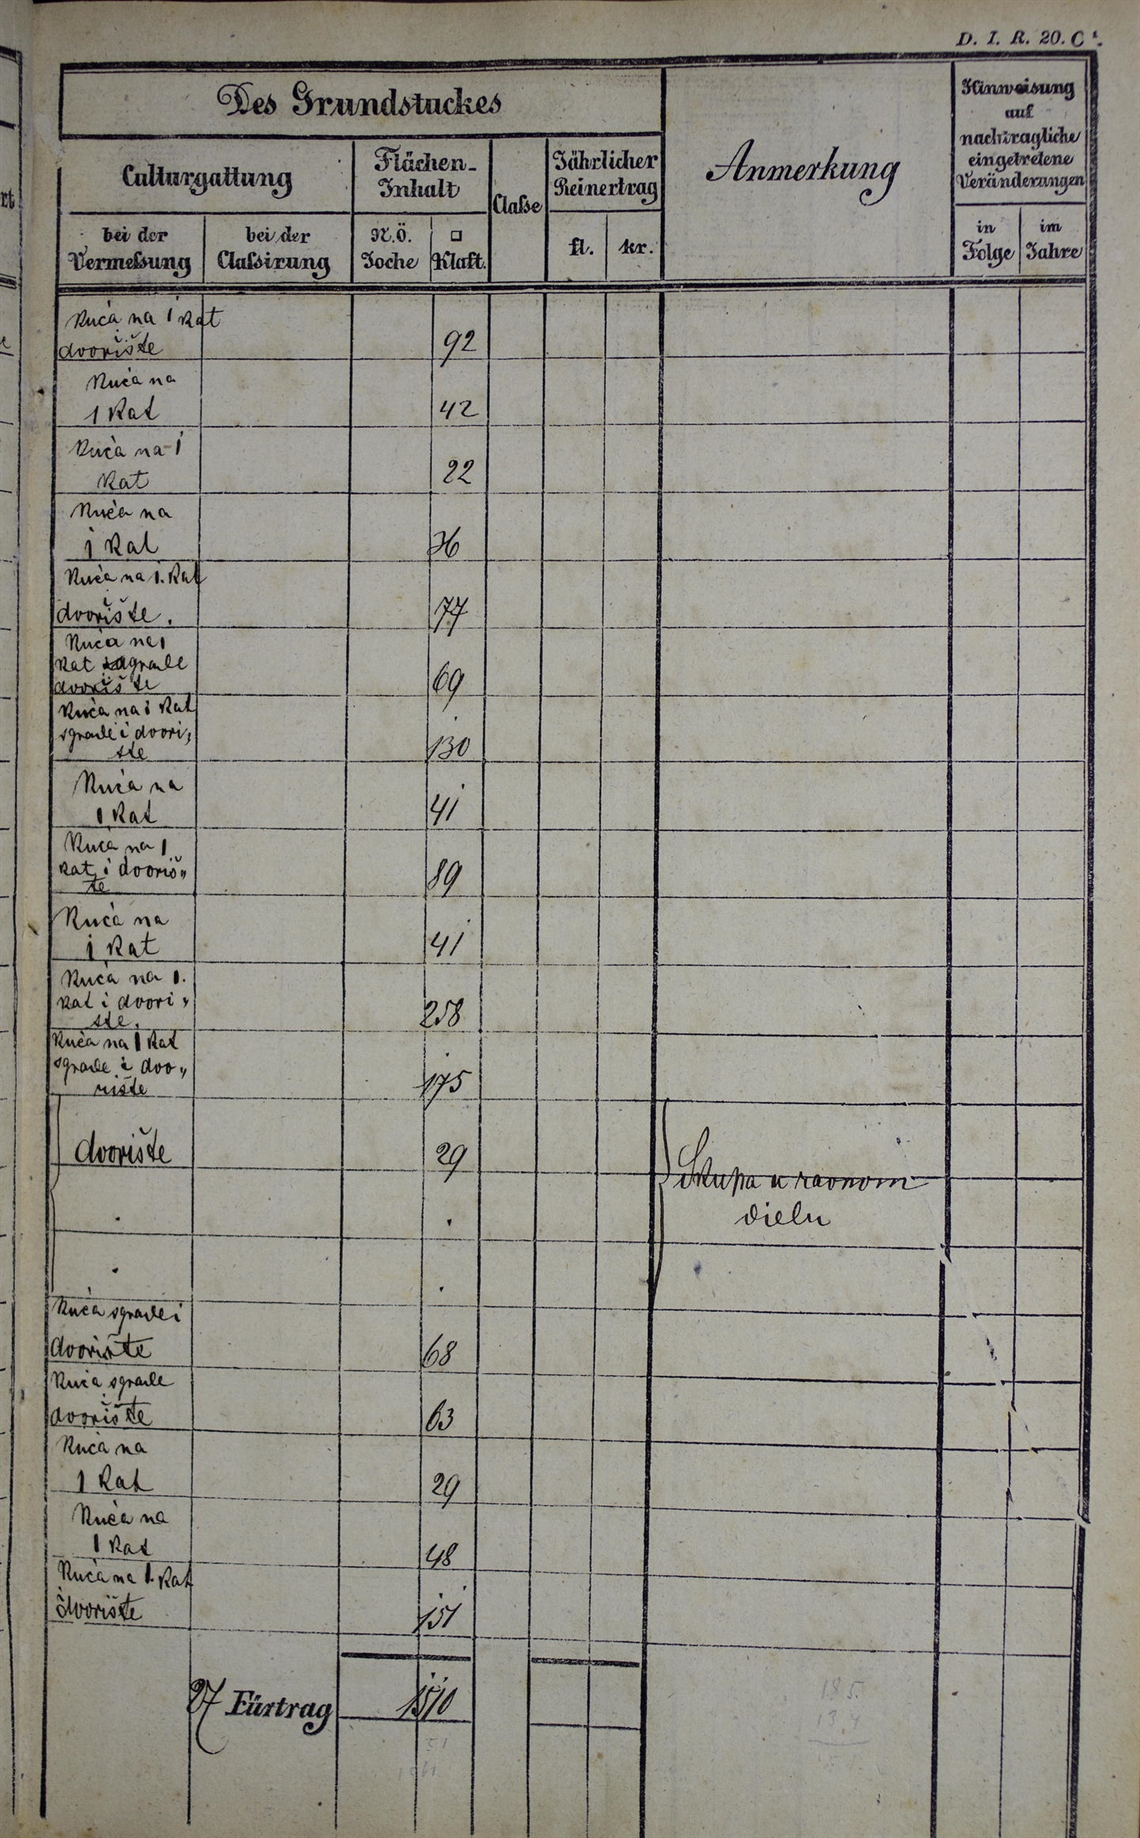 D. I. R. 20. C¹.
Des Grundstuckes
Anmerkung
Hinweisung
auf
nachtragliche
eingetretene
Veränderungen
Culturgattung
Flächen-
Inhalt
Classe
Jährlicher
Reinertrag
bei der
Vermessung
bei der
Classirung
N.Ö.
Joche
□
Klaft.
fl.
kr.
in
Folge
im
Jahre
Kuća na 1 kat
dvorište 92
Kuća na
1 Kat 42
Kuća na 1
Kat 22
Kuća na
1 Kat 36
Kuća na 1. Kat
dvorište. 77
Kuća na 1
Kat sagrade
dvorište 69
Kuća na 1 Kat
sgrade i dvori,
ste 130
Kuća na
1 Kat 41
Kuća na 1
kat i dvoriš„
te 89
Kuća na
1 Kat 41
Kuća na 1.
kat i dvori„
ste. 258
Kuća na 1 Kat
sgrade i dvo„
rište 175
dvorište 29
Skupa u ravnom
dielu
Kuća sgrade i
dvorište 68
Kuća sgrade
dvorište 63
Kuća na
1 Kat 29
Kuća na
1 Kat 48
Kuća na 1. Kat
dvorište 151
27 Fürtrag 1510
51
1561
185
13.4